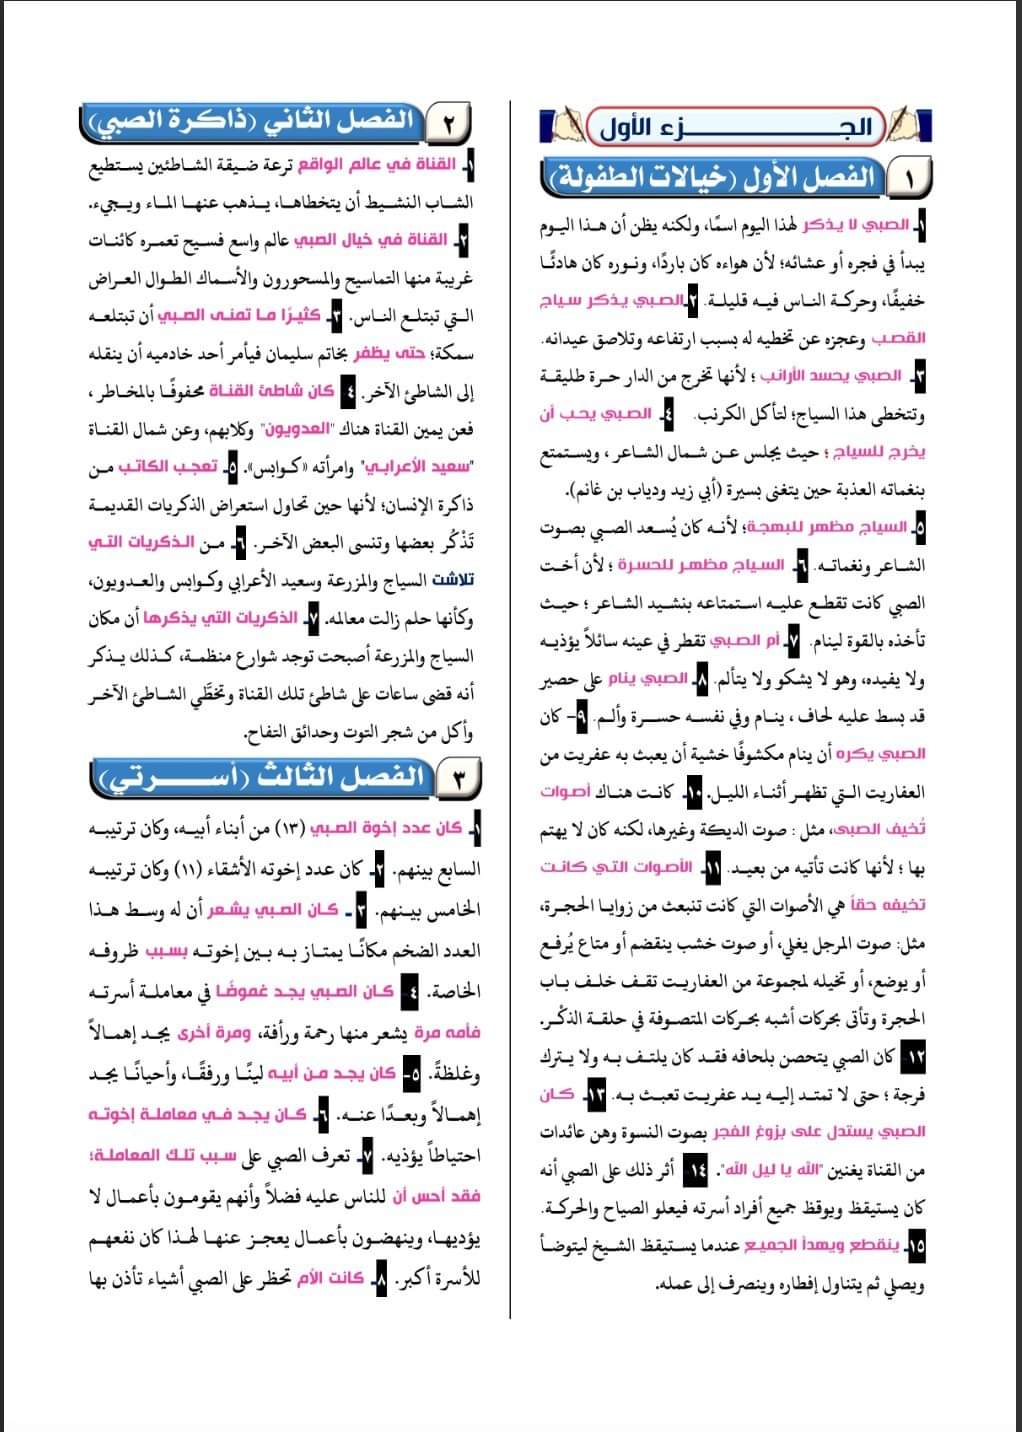 الجــزء الأول
١ الفصل الأول (خيالات الطفولة)
١ـ الصبي لا يذكر لهذا اليوم اسمًا، ولكنه يظن أن هذا اليوم
يبدأ في فجره أو عشائه؛ لأن هواءه كان باردًا، ونوره كان هادئًا
خفيفًا، وحركة الناس فيه قليلة. ٢ـ الصبي يذكر سياج
القصب وعجزه عن تخطيه له بسبب ارتفاعه وتلاصق عيدانه.
٣ـ الصبي يحسد الأرانب ؛ لأنها تخرج من الدار حرة طليقة
وتتخطى هذا السياج؛ لتأكل الكرنب. ٤ـ الصبي يحب أن
يخرج للسياج ؛ حيث يجلس عن شمال الشاعر ، ويستمتع
بنغماته العذبة حين يتغنى بسيرة (أبي زيد ودياب بن غانم).
٥ـ السياج مظهر للبهجة؛ لأنه كان يُسعد الصبي بصوت
الشاعر ونغماته. ٦ـ السياج مظهر للحسرة ؛ لأن أخت
الصبي كانت تقطع عليه استمتاعه بنشيد الشاعر ؛ حيث
تأخذه بالقوة لينام. ٧ـ أم الصبي تقطر في عينه سائلاً يؤذيه
ولا يفيده، وهو لا يشكو ولا يتألم. ٨ـ الصبي ينام على حصير
قد بسط عليه لحاف ، ينام وفي نفسه حسرة وألم. ٩ـ كان
الصبي يكره أن ينام مكشوفًا خشية أن يعبث به عفريت من
العفاريت التي تظهر أثناء الليل. ١٠ـ كانت هناك أصوات
تُخيف الصبى، مثل : صوت الديكة وغيرها، لكنه كان لا يهتم
بها ؛ لأنها كانت تأتيه من بعيد. ١١ـ الأصوات التي كانت
تخيفه حقاً هي الأصوات التي كانت تنبعث من زوايا الحجرة،
مثل: صوت المرجل يغلي، أو صوت خشب ينقضم أو متاع يُرفع
أو يوضع، أو تخيله لمجموعة من العفاريت تقف خلف باب
الحجرة وتأتى بحركات أشبه بحركات المتصوفة في حلقة الذكْر.
١٢ كان الصبي يتحصن بلحافه فقد كان يلتف به ولا يترك
فرجة ؛ حتى لا تمتد إليه يد عفريت تعبث به. ١٣ـ كان
الصبي يستدل على بزوغ الفجر بصوت النسوة وهن عائدات
من القناة يغنين "الله يا ليل الله". ١٤ أثر ذلك على الصبي أنه
كان يستيقظ ويوقظ جميع أفراد أسرته فيعلو الصياح والحركة.
١٥ـ ينقطع ويهدأ الجميع عندما يستيقظ الشيخ ليتوضأ
ويصلي ثم يتناول إفطاره وينصرف إلى عمله.
٢ الفصل الثاني (ذاكرة الصبي)
١ـ القناة في عالم الواقع ترعة ضيقة الشاطئين يستطيع
الشاب النشيط أن يتخطاها، يذهب عنها الماء ويجيء.
٢ـ القناة في خيال الصبي عالم واسع فسيح تعمره كائنات
غريبة منها التماسيح والمسحورون والأسماك الطوال العراض
التي تبتلع الناس. ٣ـ كثيرًا ما تمنى الصبي أن تبتلعه
سمكة؛ حتى يظفر بخاتم سليمان فيأمر أحد خادميه أن ينقله
إلى الشاطئ الآخر. ٤ كان شاطئ القناة محفوفًا بالمخاطر ،
فعن يمين القناة هناك "العدويون" وكلابهم، وعن شمال القناة
"سعيد الأعرابي" وامرأته «كوابس». ٥ـ تعجب الكاتب من
ذاكرة الإنسان؛ لأنها حين تحاول استعراض الذكريات القديمة
تَذْكُر بعضها وتنسى البعض الآخر. ٦ـ من الذكريات التي
تلاشت السياج والمزرعة وسعيد الأعرابي وكوابس والعدويون،
وكأنها حلم زالت معالمه. ٧ـ الذكريات التي يذكرها أن مكان
السياج والمزرعة أصبحت توجد شوارع منظمة، كذلك يذكر
أنه قضى ساعات على شاطئ تلك القناة وتخطَّي الشاطئ الآخر
وأكل من شجر التوت وحدائق التفاح.
٣ الفصل الثالث (أسـرتي)
١ـ كان عدد إخوة الصبي (١٣) من أبناء أبيه، وكان ترتيبه
السابع بينهم. ٢ـ كان عدد إخوته الأشقاء (١١) وكان ترتيبه
الخامس بينهم. ٣ ـ كان الصبي يشعر أن له وسط هذا
العدد الضخم مكانًا يمتاز به بين إخوته بسبب ظروفه
الخاصة. ٤ـ كان الصبي يجد غموضًا في معاملة أسرته
فأمه مرة يشعر منها رحمة ورأفة، ومرة أخرى يجد إهمالاً
وغلظةً. ٥ـ كان يجد من أبيه لينًا ورفقًا، وأحيانًا يجد
إهمالاً وبعدًا عنه. ٦ـ كان يجد في معاملة إخوته
احتياطاً يؤذيه. ٧ـ تعرف الصبي على سبب تلك المعاملة؛
فقد أحس أن للناس عليه فضلاً وأنهم يقومون بأعمال لا
يؤديها، وينهضون بأعمال يعجز عنها لهذا كان نفعهم
للأسرة أكبر. ٨ـ كانت الأم تحظر على الصبي أشياء تأذن بها